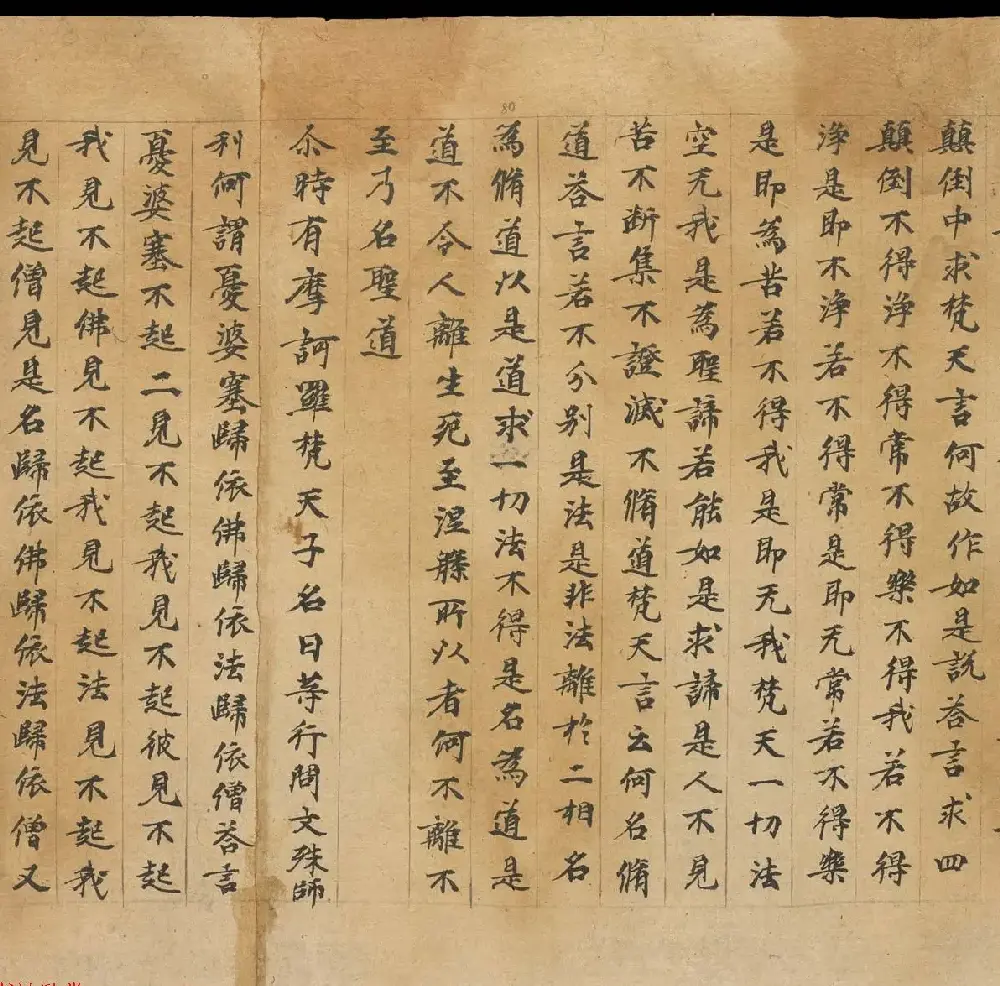 顛倒中求梵天言何故作如是説荅言求四
顛倒不得浄不得常不得樂不得我若不得
浄是即不浄若不得常是即无常若不得樂
是即為苦若不得我是即无我梵天一切法
空无我是為聖諦若能如是求諦是人不見
苦不断集不證滅不脩道梵天言云何名脩
道荅言若不分别是法是非法離於二相名
為脩道以是道求一切法不得是名為道是
道不令人離生死至涅槃所以者何不離不
至乃名聖道
尒時有摩訶羅梵天子名曰等行問文殊師
利何謂憂婆塞歸依佛歸依法歸依僧荅言
憂婆塞不起二見不起我見不起彼見不起
我見不起佛見不起我見不起法見不起我
見不起僧見是名歸依佛歸依法歸依僧又